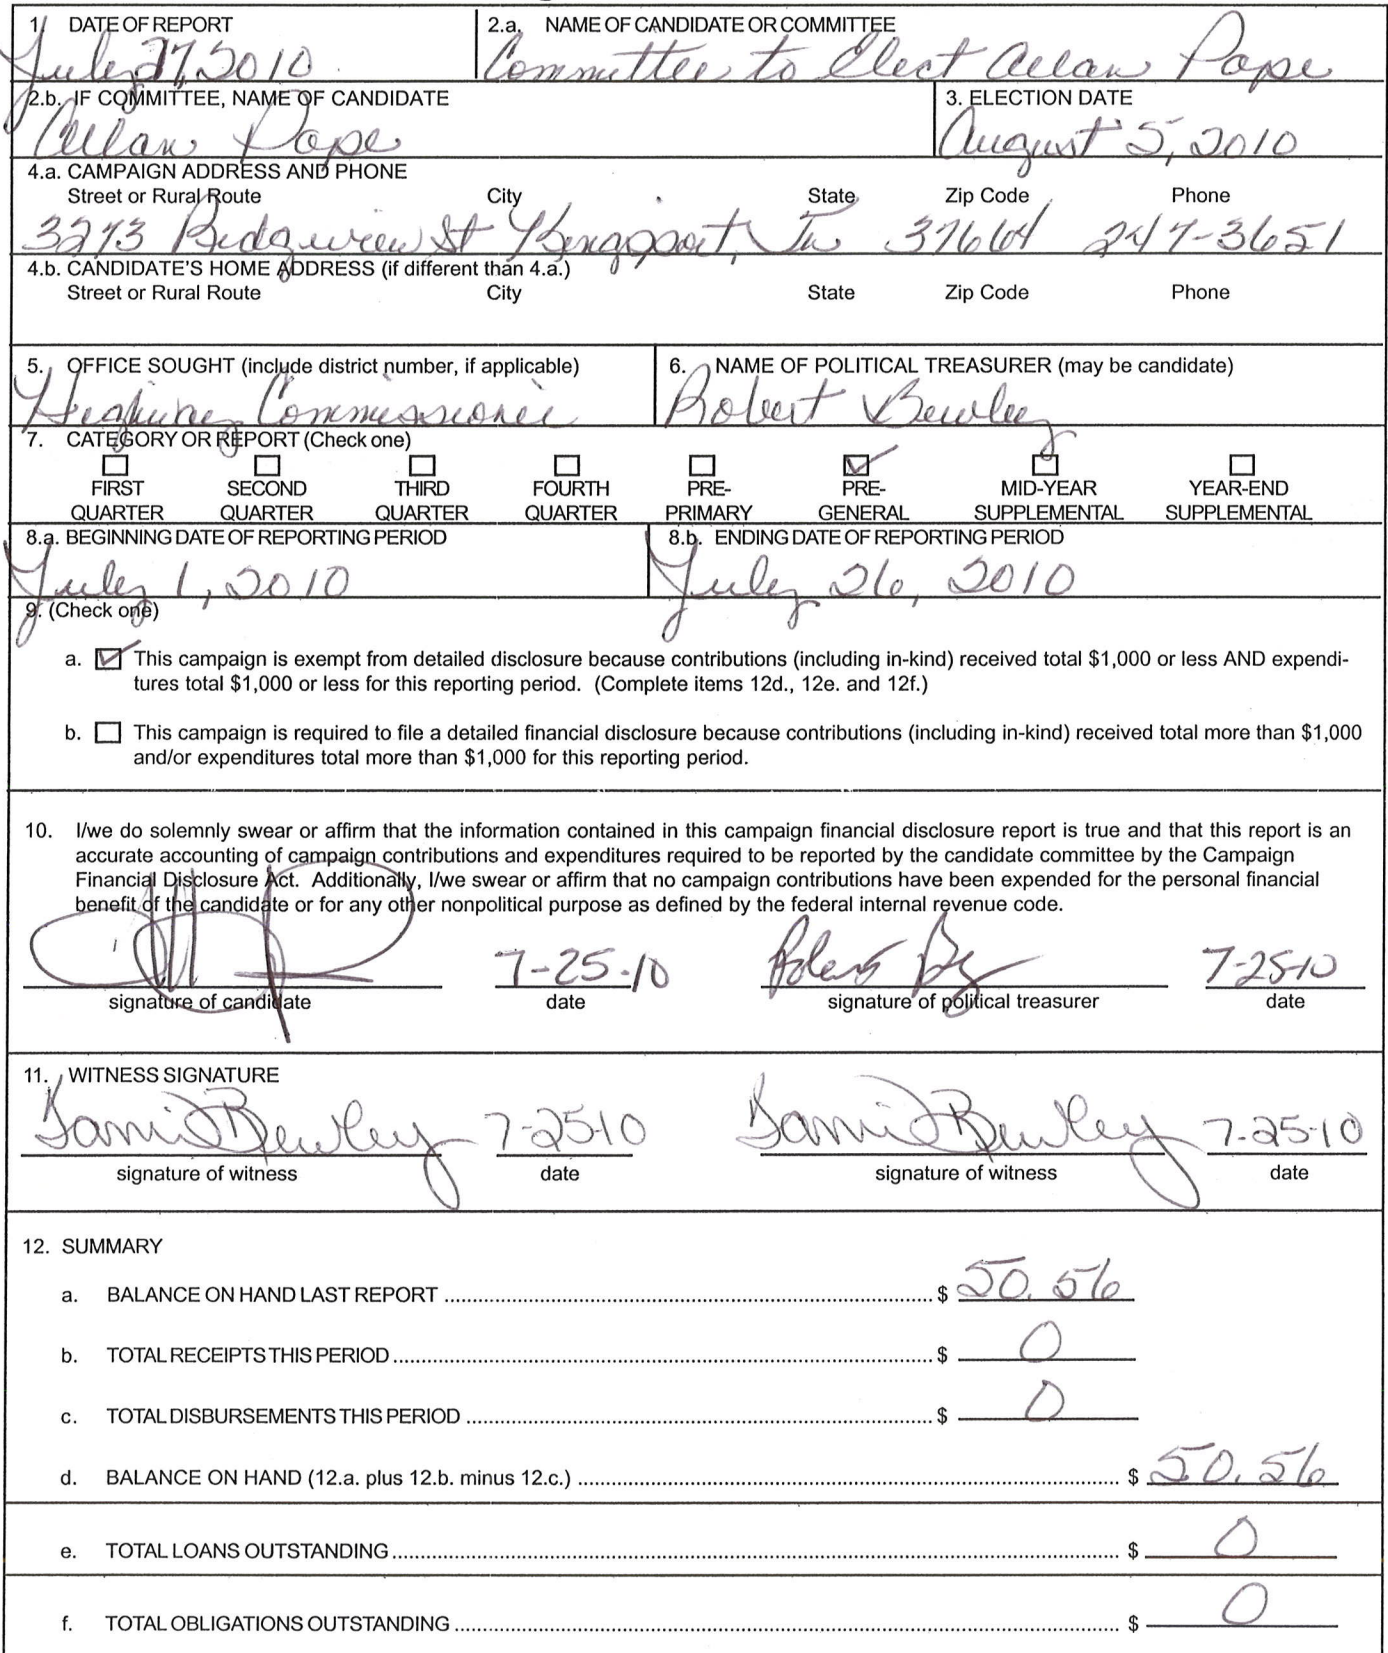 1. DATE OF REPORT
July 27, 2010
2.a. NAME OF CANDIDATE OR COMMITTEE
Committee to Elect Allan Pope
2.b. IF COMMITTEE, NAME OF CANDIDATE
Allan Pope
3. ELECTION DATE
August 5, 2010
4.a. CAMPAIGN ADDRESS AND PHONE
Street or Rural Route City State Zip Code Phone
3273 Ridgeview St Kingsport, Tn 37664 247-3651
4.b. CANDIDATE'S HOME ADDRESS (if different than 4.a.)
Street or Rural Route City State Zip Code Phone
5. OFFICE SOUGHT (include district number, if applicable)
Highway Commissioner
6. NAME OF POLITICAL TREASURER (may be candidate)
Robert Bewley
7. CATEGORY OR REPORT (Check one)
FIRST QUARTER
SECOND QUARTER
THIRD QUARTER
FOURTH QUARTER
PRE-PRIMARY
PRE-GENERAL
MID-YEAR SUPPLEMENTAL
YEAR-END SUPPLEMENTAL
8.a. BEGINNING DATE OF REPORTING PERIOD
July 1, 2010
8.b. ENDING DATE OF REPORTING PERIOD
July 26, 2010
9. (Check one)
a. This campaign is exempt from detailed disclosure because contributions (including in-kind) received total $1,000 or less AND expendi-
tures total $1,000 or less for this reporting period. (Complete items 12d., 12e. and 12f.)
b. This campaign is required to file a detailed financial disclosure because contributions (including in-kind) received total more than $1,000
and/or expenditures total more than $1,000 for this reporting period.
10. I/we do solemnly swear or affirm that the information contained in this campaign financial disclosure report is true and that this report is an
accurate accounting of campaign contributions and expenditures required to be reported by the candidate committee by the Campaign
Financial Disclosure Act. Additionally, I/we swear or affirm that no campaign contributions have been expended for the personal financial
benefit of the candidate or for any other nonpolitical purpose as defined by the federal internal revenue code.
7-25-10 7-25-10
signature of candidate date signature of political treasurer date
11. WITNESS SIGNATURE
Bewley 7-25-10 Bewley 7-25-10
signature of witness date signature of witness date
12. SUMMARY
a. BALANCE ON HAND LAST REPORT $ 50.56
b. TOTAL RECEIPTS THIS PERIOD $ 0
c. TOTAL DISBURSEMENTS THIS PERIOD $ 0
d. BALANCE ON HAND (12.a. plus 12.b. minus 12.c.) $ 50.56
e. TOTAL LOANS OUTSTANDING $ 0
f. TOTAL OBLIGATIONS OUTSTANDING $ 0